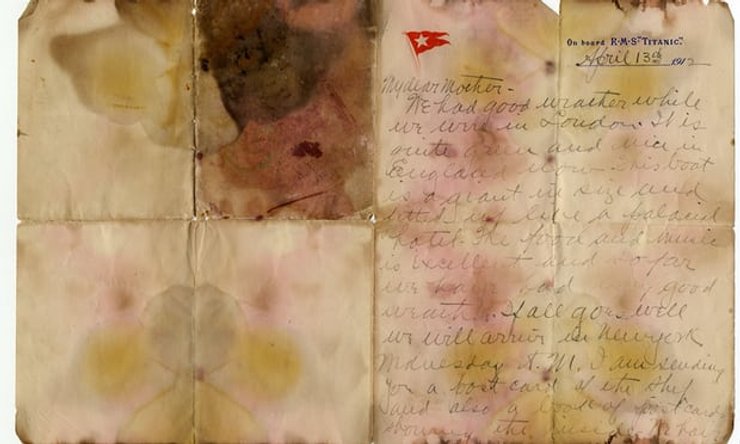 On board R·M·S "TITANIC".
April 13th 1912
My dear Mother-
We had good weather while
we were in London. It is
quite green and nice in
England now. This boat
is a giant in size and
fitted up like a palacial
hotel. The food and music
is excellent and so far
we have had very good
weather. If all goes well
we will arrive in New York
Wednesday A.M. I am sending
you a post card of the ship
and also a book of post cards
showing the inside